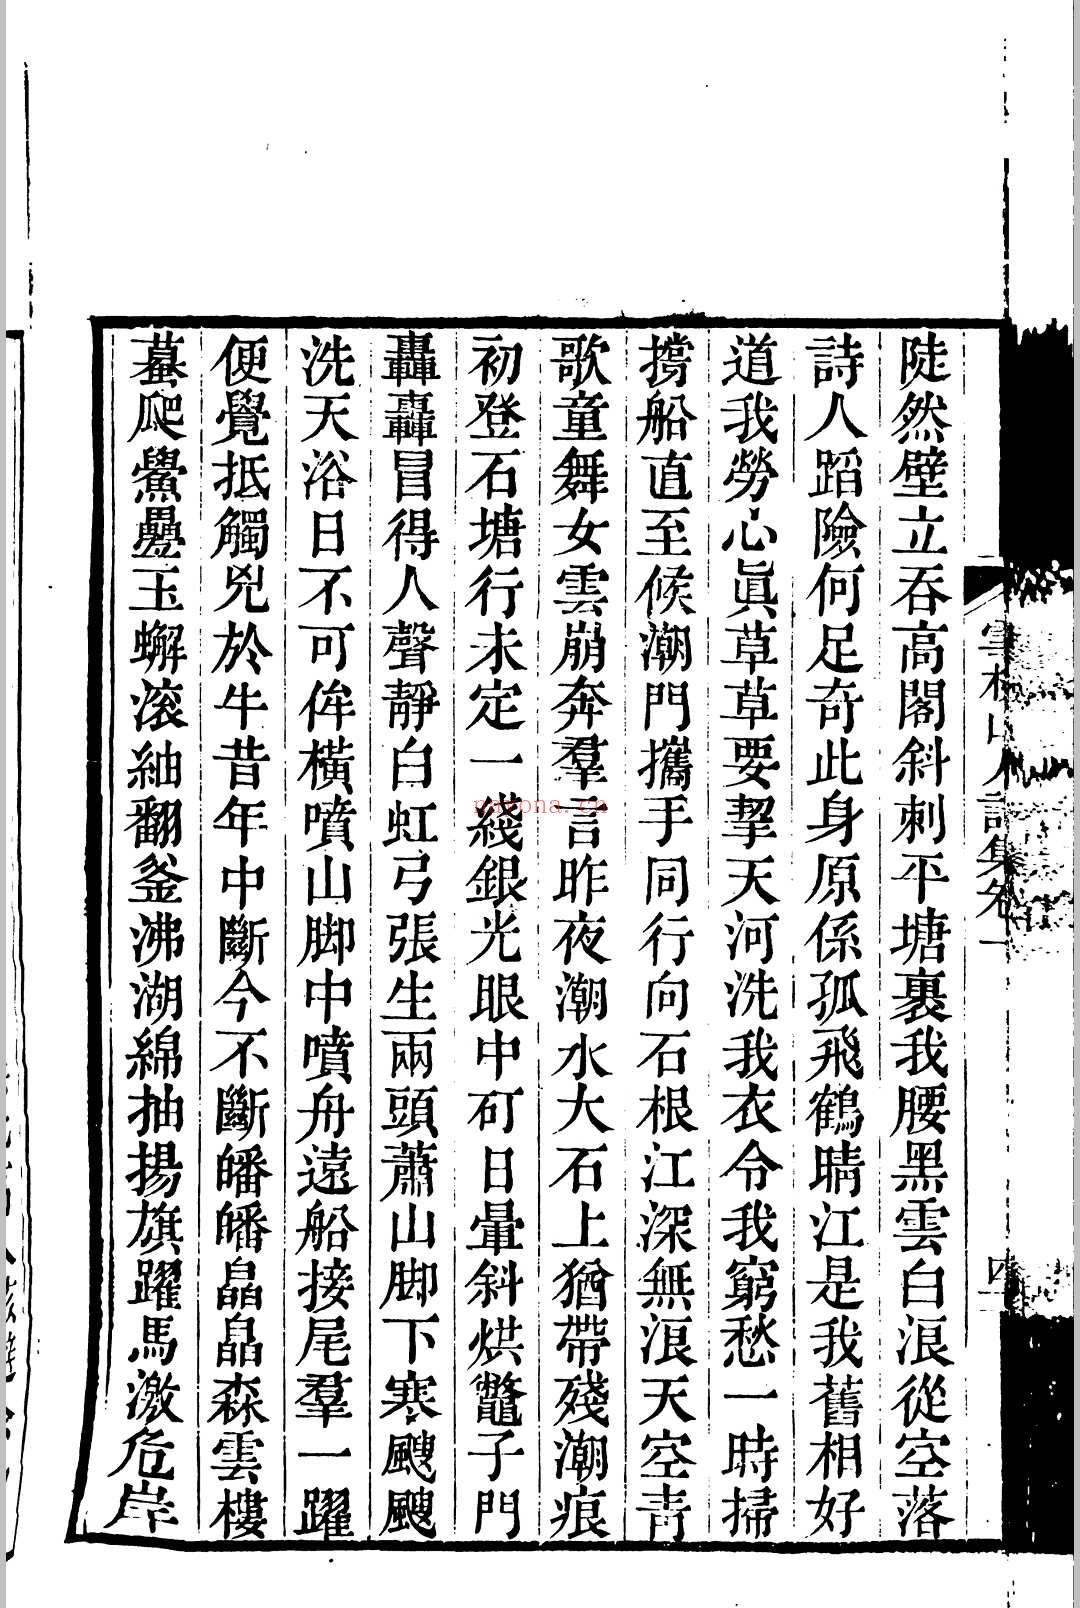 陡然壁立吞高閣斜刺平塘裹我腰黑雲白浪從空落
詩人蹈險何足奇此身原係孤飛鶴晴江是我舊相好
道我勞心眞草草要挈天河洗我衣令我窮愁一時掃
撐船直至候潮門攜手同行向石根江深無浪天空青
歌童舞女雲崩奔羣言昨夜潮水大石上猶帶殘潮痕
初登石塘行未定一綫銀光眼中矴日暈斜烘鼈子門
轟轟冒得人聲靜白虹弓張生兩頭蕭山脚下寒颼颼
洗天浴日不可侔橫噴山脚中噴舟遠船接尾羣一躍
便覺抵觸兕於牛昔年中斷今不斷皤皤皛皛森雲樓
蟇爬鱟疊玉蠏滚紬翻釜沸湖綿抽揚旗躍馬激危岸
山人詩集卷一
四